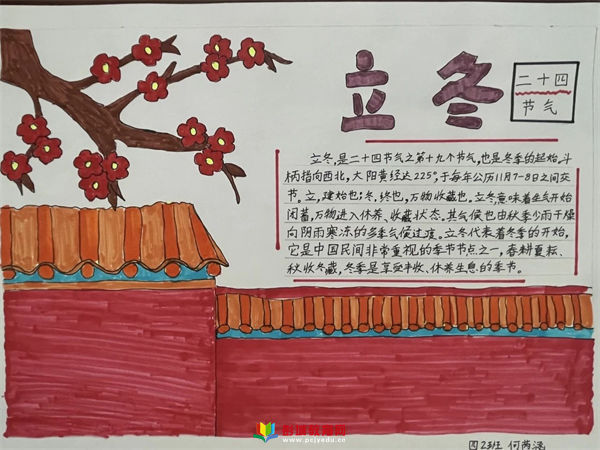 立冬
二十四
节气
立冬,是二十四节气之第十九个节气,也是冬季的起始。斗
柄指向西北,太阳黄经达225°,于每年公历11月7-8日之间交
节。立,建始也;冬,终也,万物收藏也。立冬,意味着生气开始
闭蓄,万物进入休养、收藏状态。其气候也由秋季少雨干燥
向阴雨寒冻的冬季气候过渡。立冬代表着冬季的开始,
它是中国民间非常重视的季节节点之一,春耕夏耘、
秋收冬藏,冬季是享受丰收、休养生息的季节。
彭瑞教育网
www.pcjyedu.cn
四2班 何芮涵